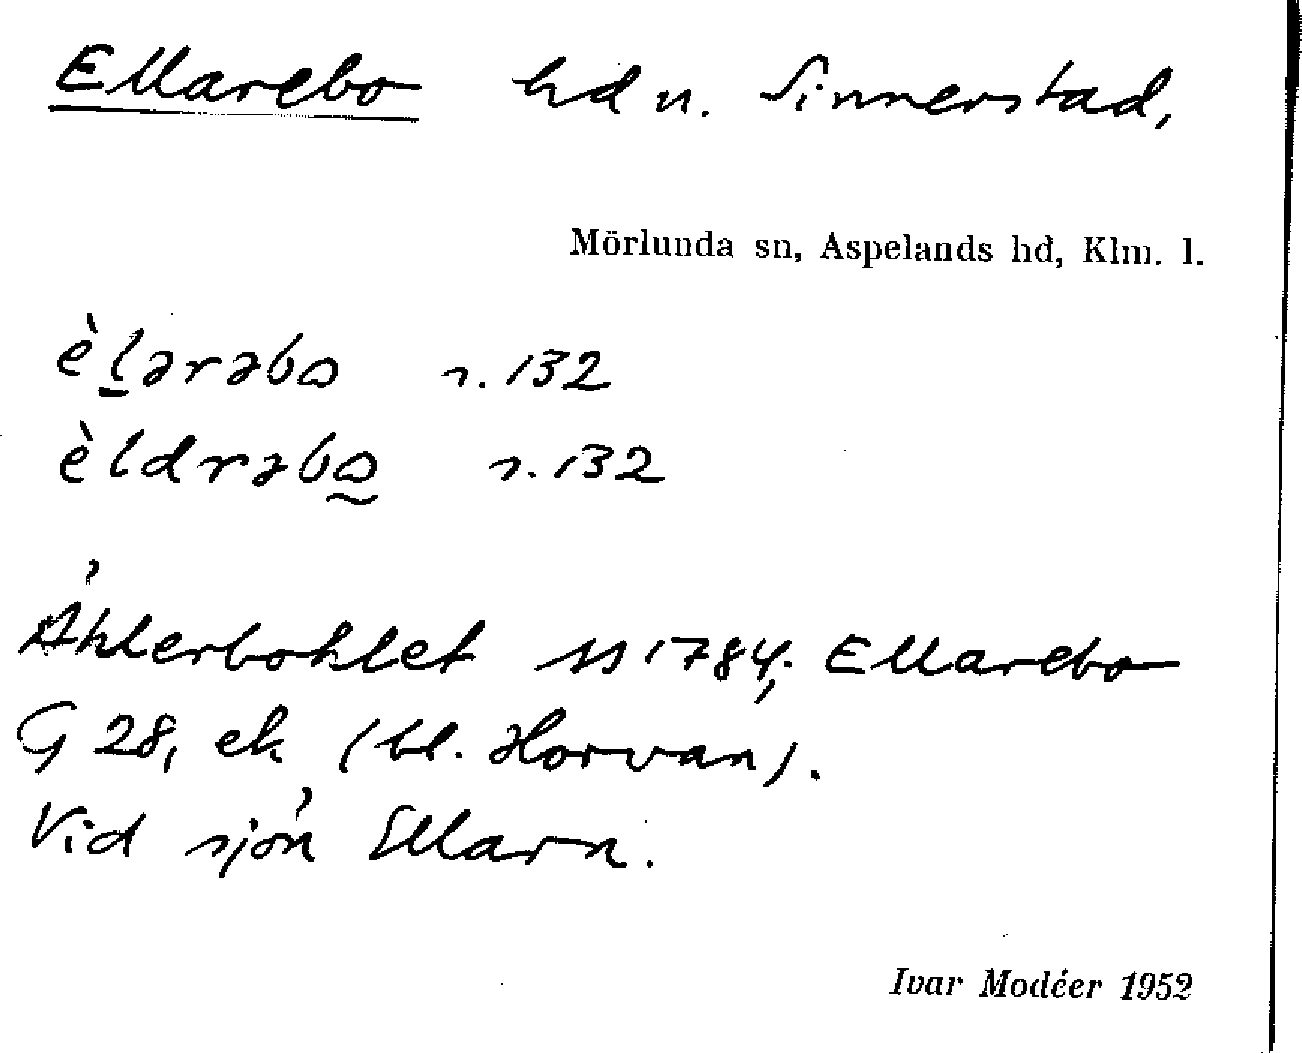 Ellarebo hd u. Sinnerstad,
Mörlunda sn, Aspelands hd, Klm. l.
èl̲ərəbɷ s. 132
èldrəbɷ̰ s. 132
Åhlerbohlet ss 1784; Ellarebo
G 28, ek (bl. Horvan).
Vid sjön Ellarn.
Ivar Modéer 1952